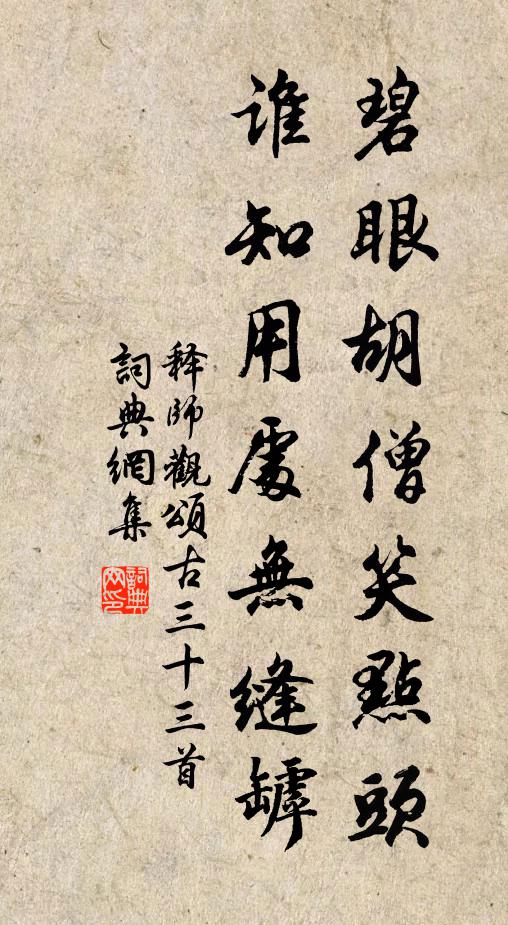 碧眼胡僧笑點頭
誰知用處無縫罅
释師觀頌古三十三首
詞典網集
詞典網印